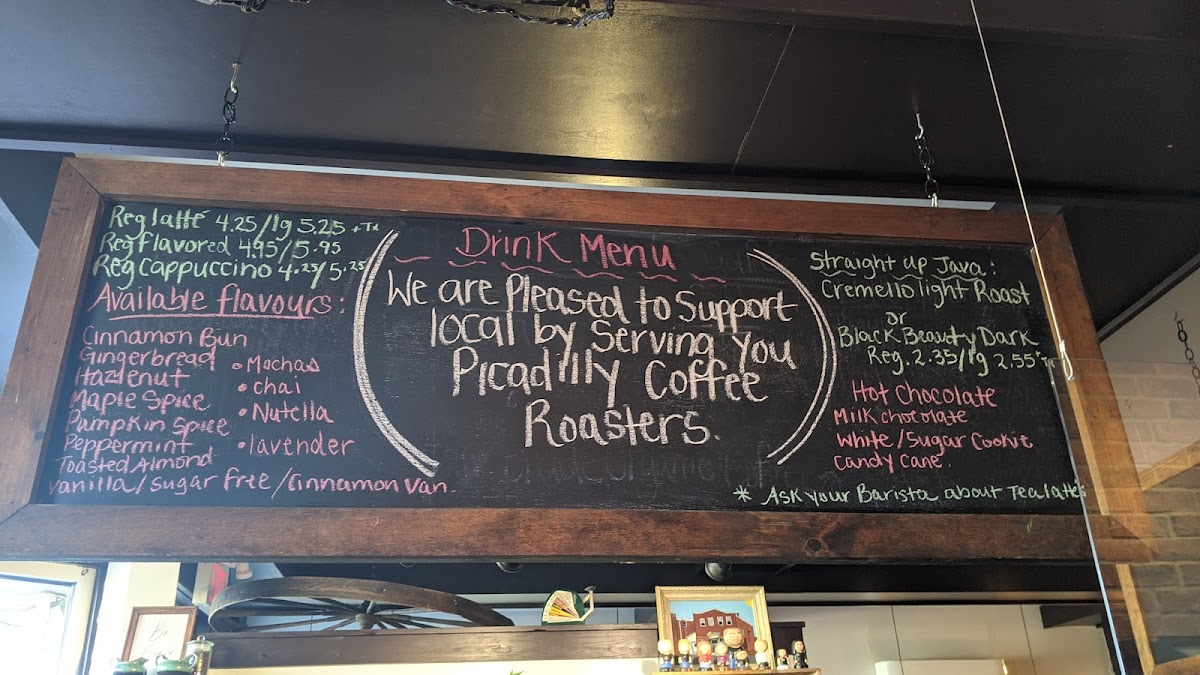 Reg latté 4.25/lg 5.25 + Tx
Reg flavored 4.95/5.95
Reg Cappuccino 4.25/5.25
Available flavours:
Cinnamon Bun
Gingerbread
Hazlenut
Maple Spice
Pumpkin Spice
Peppermint
Toasted Almond
Vanilla/Sugar Free/Cinnamon Van
• Mochas
• chai
• Nutella
• lavender
Drink Menu
We are Pleased to Support
local by Serving you
Picadilly Coffee
Roasters.
Straight up Java:
Cremello light Roast
or
Black Beauty Dark
Reg. 2.35/lg 2.55
Hot Chocolate
Milk chocolate
White/Sugar Cookie
Candy Cane.
* Ask your Barista about Tea lattes